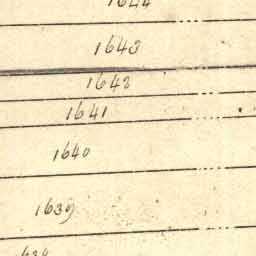 1644
1643
1642
1641
1640
1639